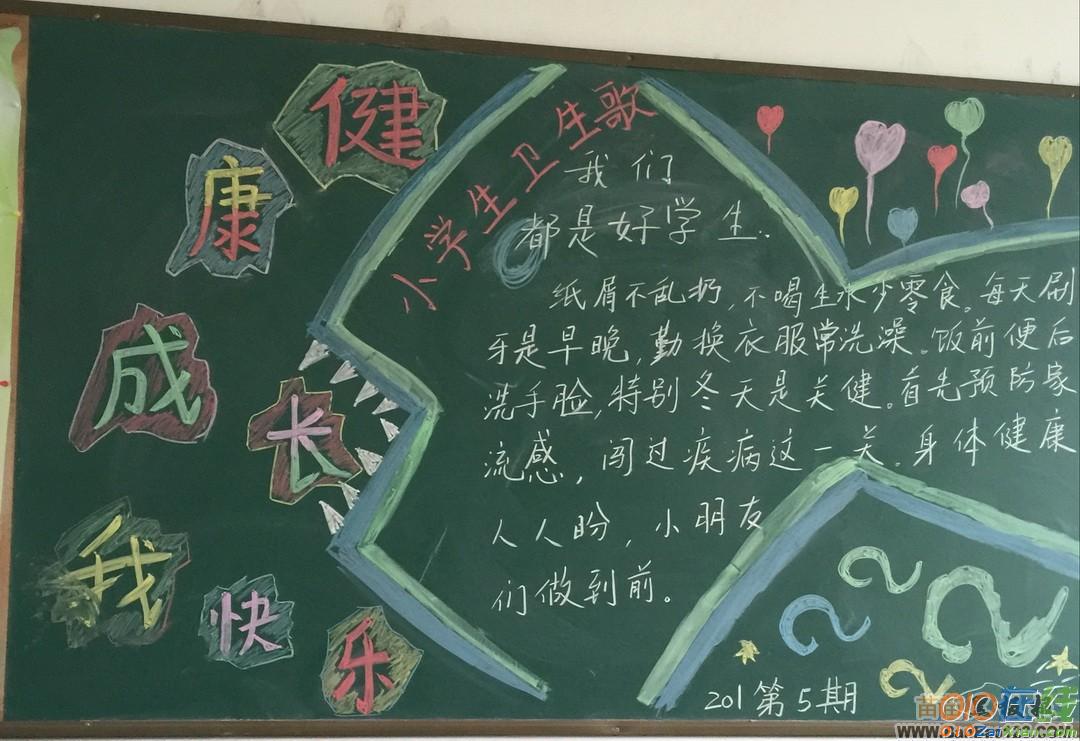 健
康
成
长
我
快
乐
小学生卫生歌
我们
都是好学生:
纸屑不乱扔,不喝生水少零食。每天刷
牙是早晚,勤换衣服常洗澡。饭前便后
洗手脸,特别冬天是关健。首先预防家
流感,闯过疾病这一关。身体健康
人人盼,小朋友
们做到前。
201第5期
OO在线
www.OiOZaiXian.com